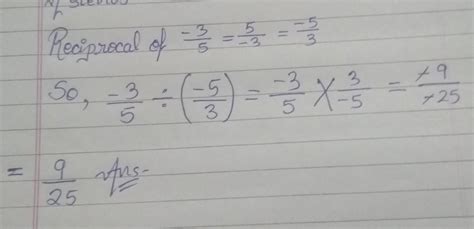 Reciprocal of -3/5 = 5/-3 = -5/3
So, -3/5 ÷ (-5/3) = -3/5 × 3/-5 = -9/-25
= 9/25 Ans-